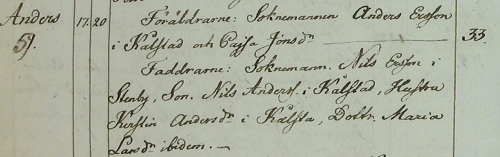 Anders 17. 20 Föräldrarne: Soknemannen Anders Ersson
5). i Kålstad och Cajsa Jönsdr 33
Faddrarne: Soknemann. Nils Ersson i
Stenby, Son. Nils Anderss. i Kålstad, Hustru
Kerstin Andersdr i Kålsta, Dottr. Maria
Larsdr ibidem. —